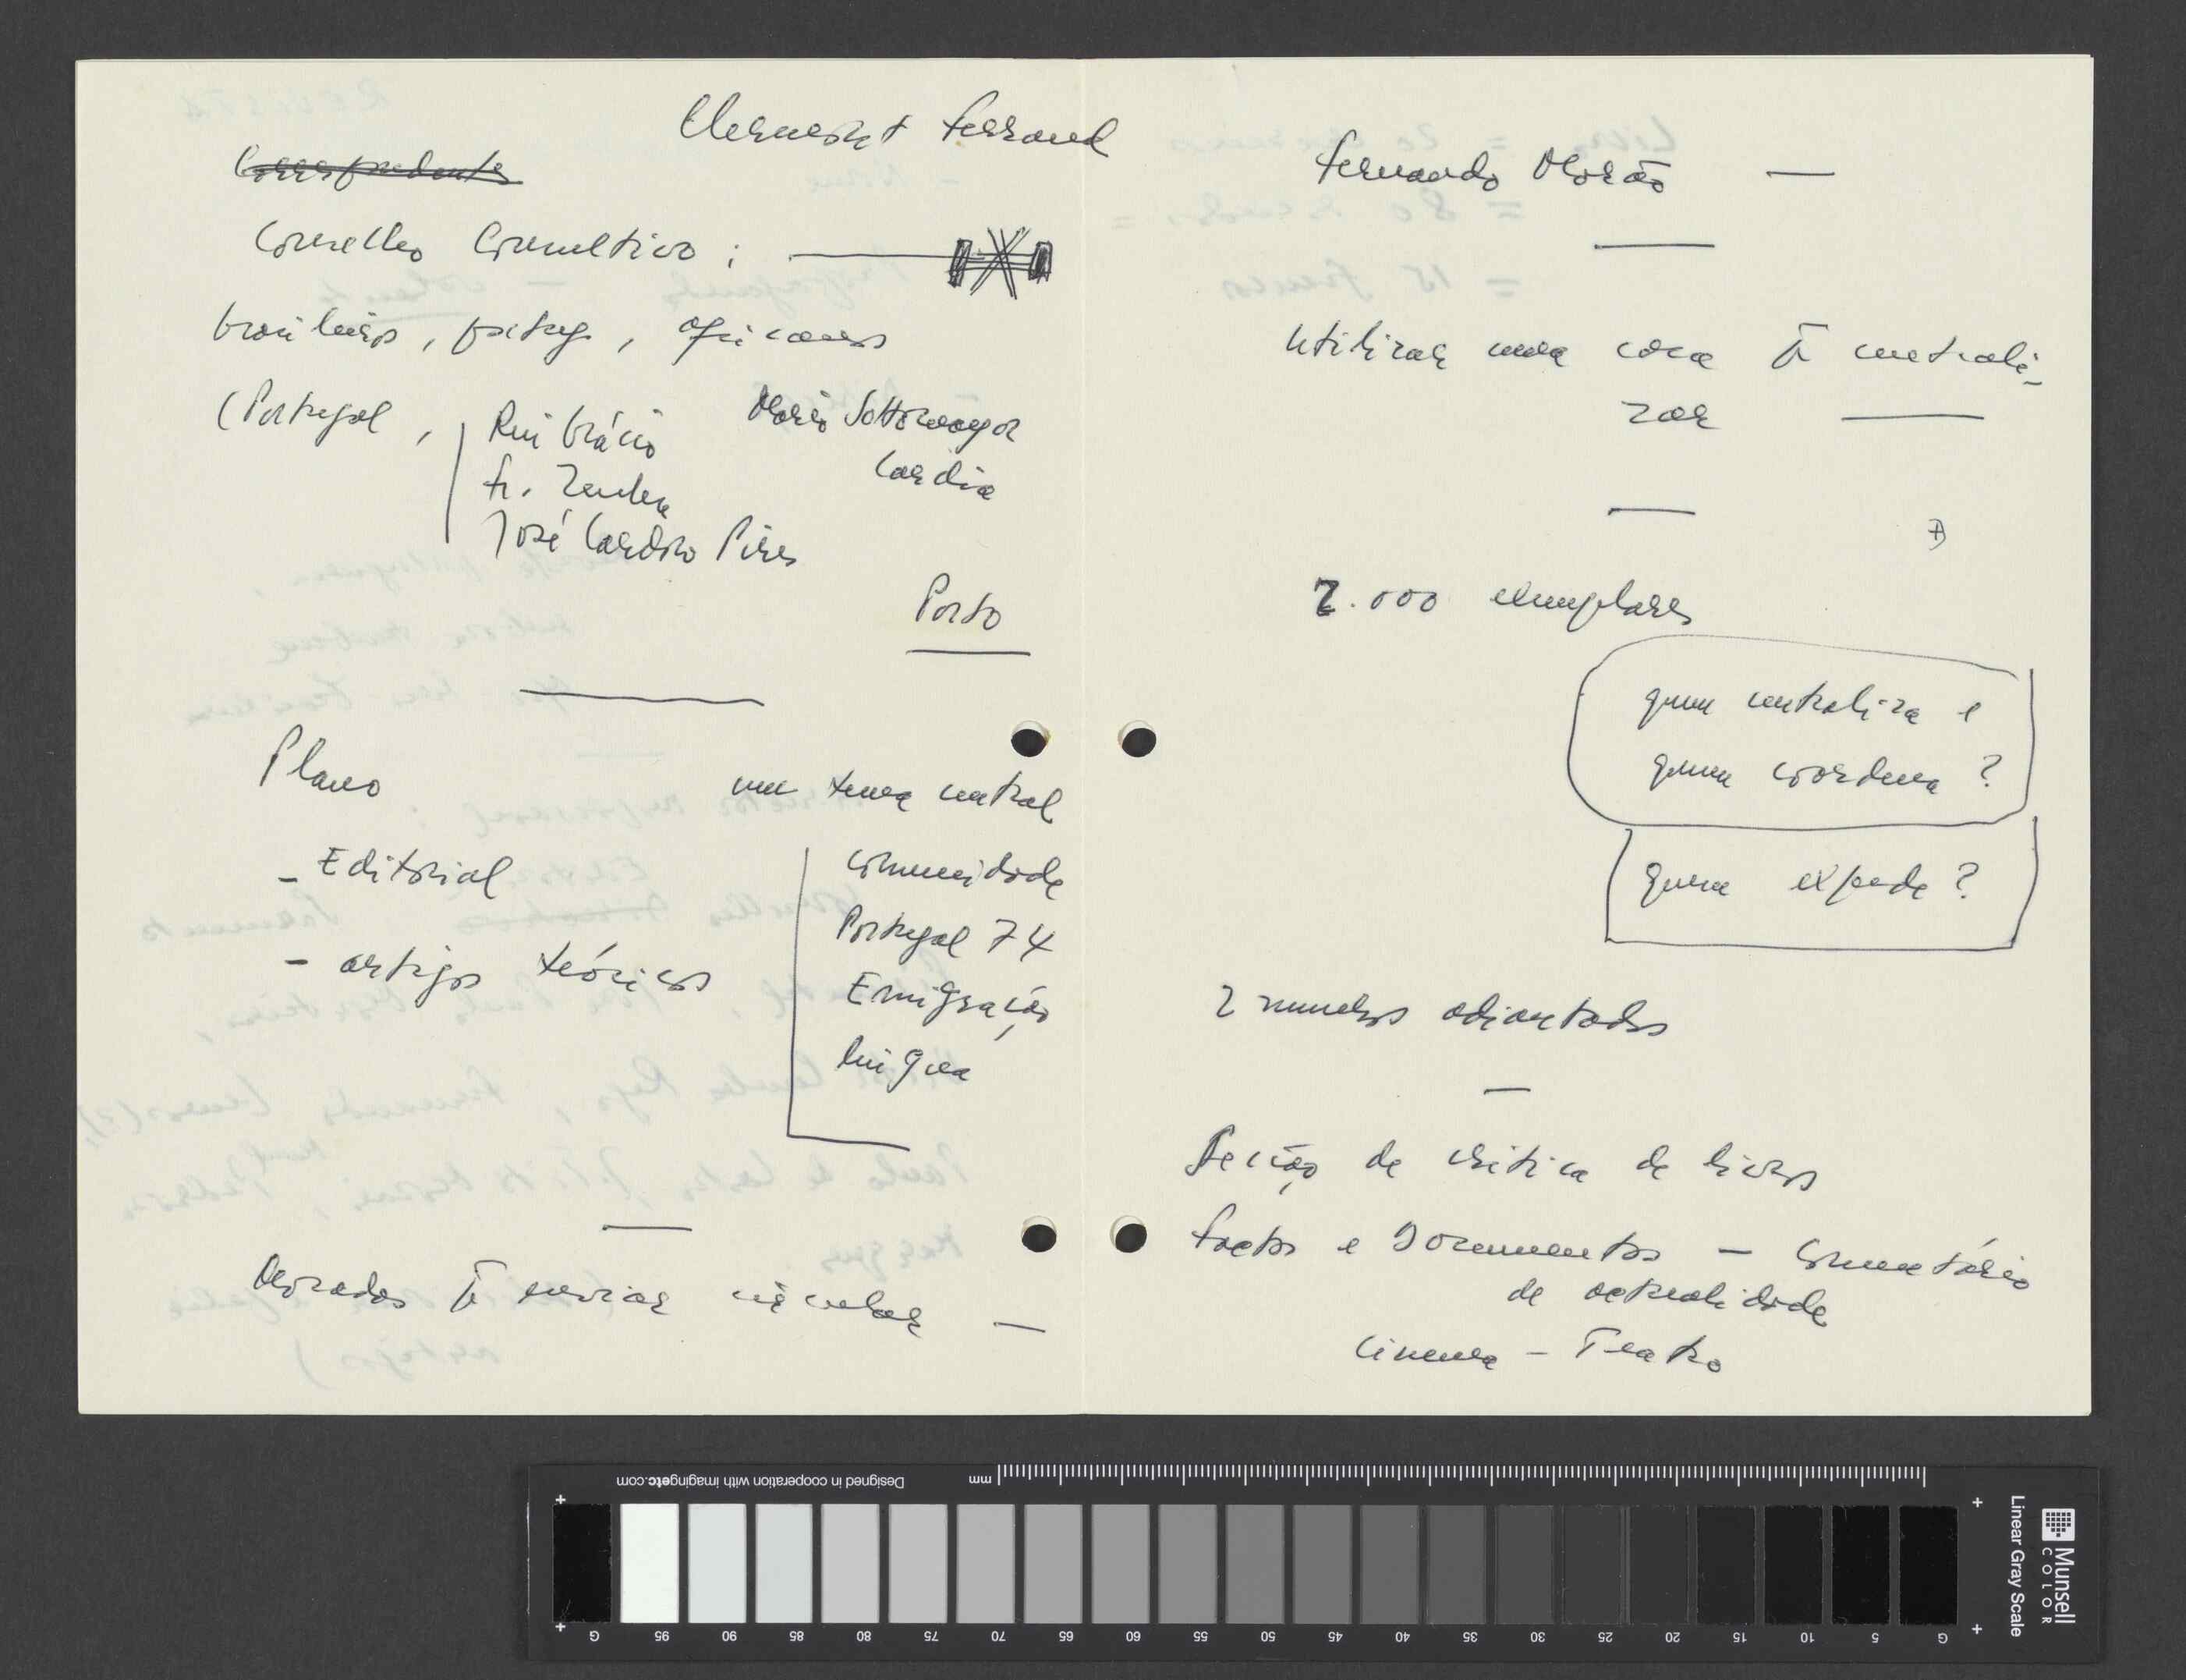 Clermont Ferrand
Correspondentes
Conselho Consultivo :
brasileiros, portug., africanos
(Portugal, Rui Grácio
Mário Sottomayor
Cardia
Fr. Zenha
José Cardoso Pires
Porto
Plano
um tema central
- Editorial
comunidade
Portugal 74
- artigos teóricos
Emigração
língua
Moradas p. enviar circular —
Fernando Mourão —
Utilizar uma casa p. centrali-
zar
2.000 exemplares
quem centraliza e
quem coordena ?
quem expede ?
2 numeros adiantados
Secção de crítica de livros
Factos e Documentos — Comentário
de actualidade
Cinema — Teatro
Designed in cooperation with imagingetc.com
mm
G 95 90 85 80 75 70 65 60 55 50 45 40 35 30 25 20 15 10 5 G
Linear Gray Scale
Munsell
COLOR